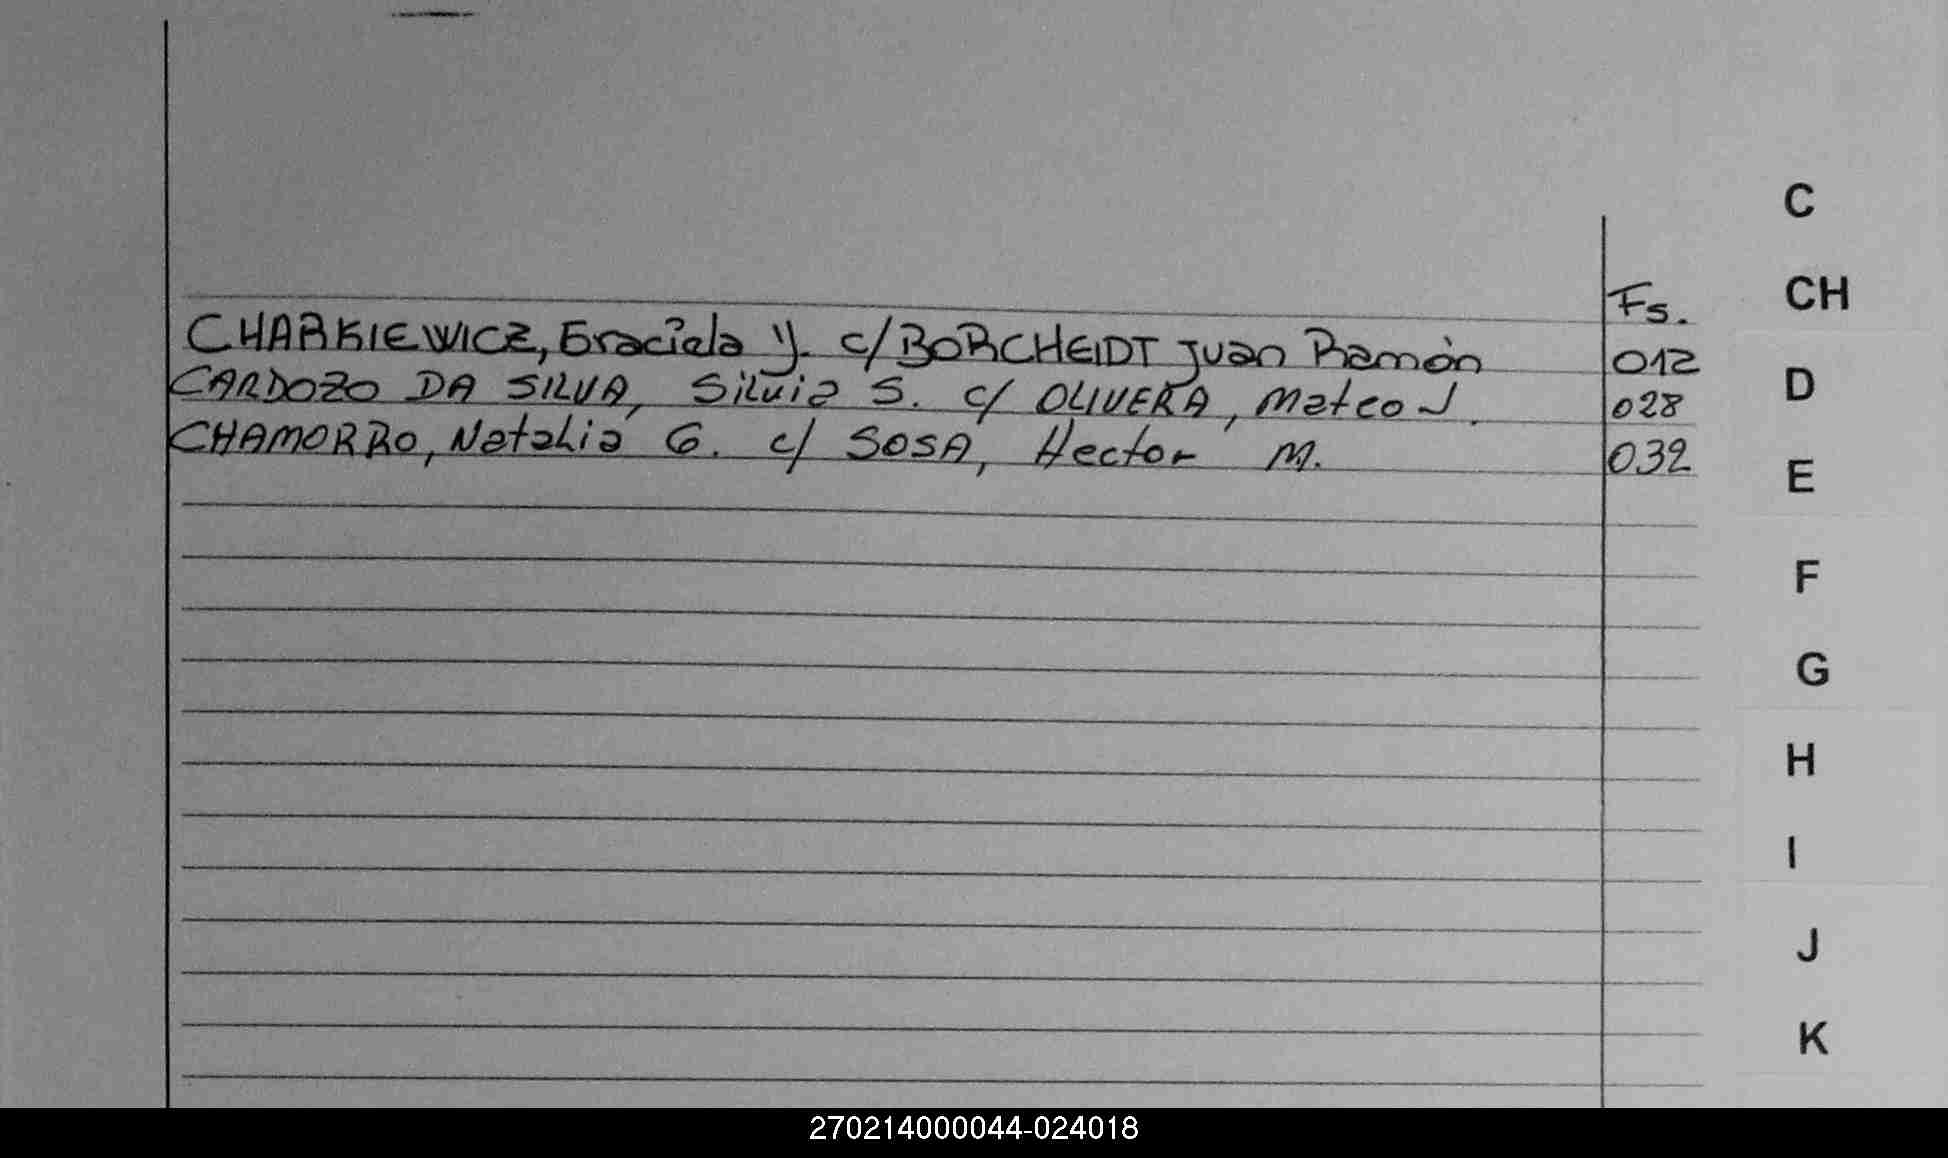 C
CH
Fs.
CHARKIEWICZ, Graciela Y. c/BORCHEIDT Juan Ramón 012
D
CARDOZO DA SILVA, Silvia S. c/ OLIVERA, Mateo J. 028
CHAMORRO, Natalia G. c/ SOSA, Hector M. 032
E
F
G
H
I
J
K
270214000044-024018